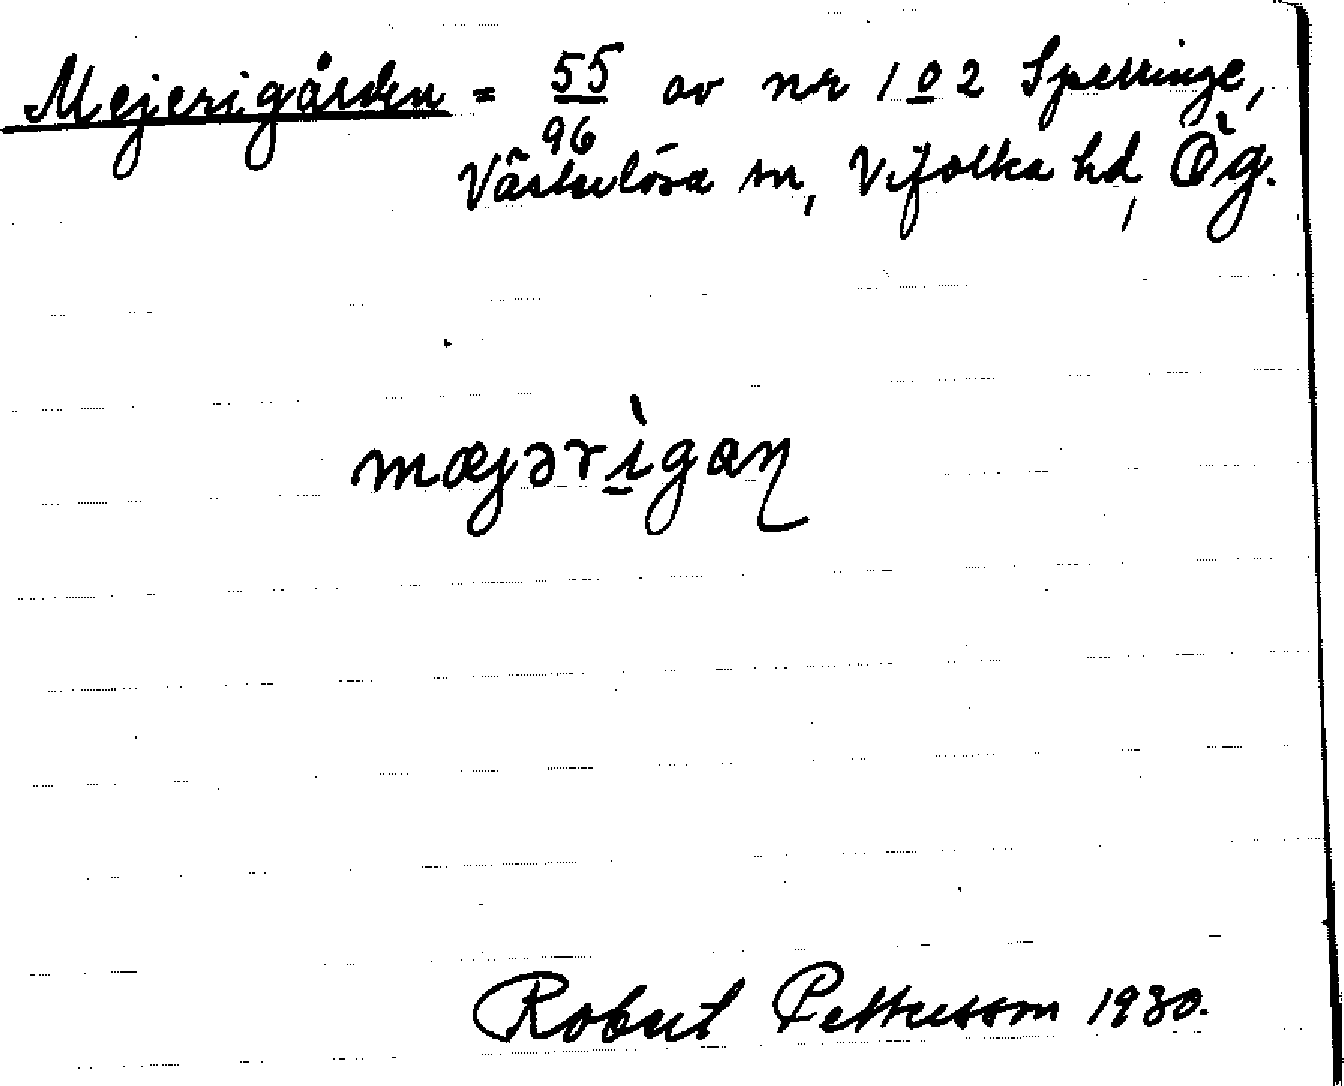 Mejerigården = 55/96 av nr 1 o 2 Spellinge,
Västerlösa sn, Vifolka hd, Ög.
mæjərìgaɳ
Robert Pettersson 1930.